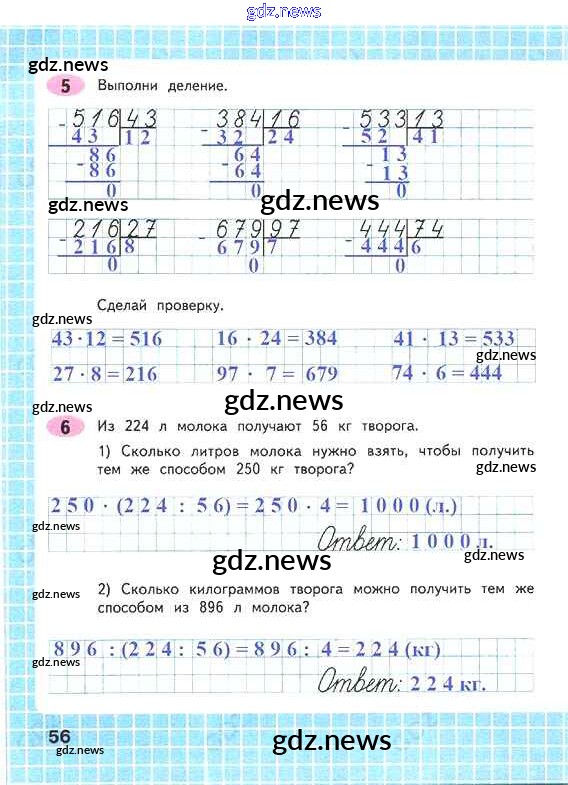 gdz.news
gdz.news
5 Выполни деление.
516 43 384 16 533 13
- 43 12 - 32 24 - 52 41
86 64 13
- 86 - 64 - 13
0 0 0
gdz.news
gdz.news
216 27 679 97 444 74
- 216 8 - 679 7 - 444 6
0 0 0
Сделай проверку.
gdz.news
43 · 12 = 516 16 · 24 = 384 41 · 13 = 533
gdz.news
27 · 8 = 216 97 · 7 = 679 74 · 6 = 444
gdz.news
gdz.news
6 Из 224 л молока получают 56 кг творога.
1) Сколько литров молока нужно взять, чтобы получить
тем же способом 250 кг творога?
gdz.news
250 · (224 : 56) = 250 · 4 = 1000 (л.)
gdz.news
Ответ: 1000 л.
gdz.news
2) Сколько килограммов творога можно получить тем же
gdz.news
способом из 896 л молока?
896 : (224 : 56) = 896 : 4 = 224 (кг)
gdz.news
Ответ: 224 кг.
56
gdz.news
gdz.news